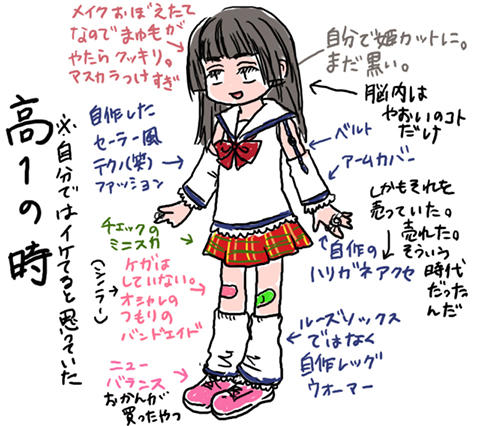 メイクおぼえたて
なのでまゆもが
やたらクッキリ。
マスカラつけすぎ
自分で姫カットに。
まだ黒い。
脳内は
やおいのコト
だけ
自作した
セーラー風
テクノ(笑)
ファッション
ベルト
アームカバー
高1の時
※自分ではイケてると思っていた
(シノラー)
チェックの
ミニスカ
しかもそれを
売っていた。
売れた。
そういう
時代
だった
んだ
自作の
ハリガネアクセ
ケガは
していない。
オシャレの
つもりの
バンドエイド
ルーズソックス
ではなく
自作レッグ
ウォーマー
ニュー
バランス
おかんが
買ったやつ